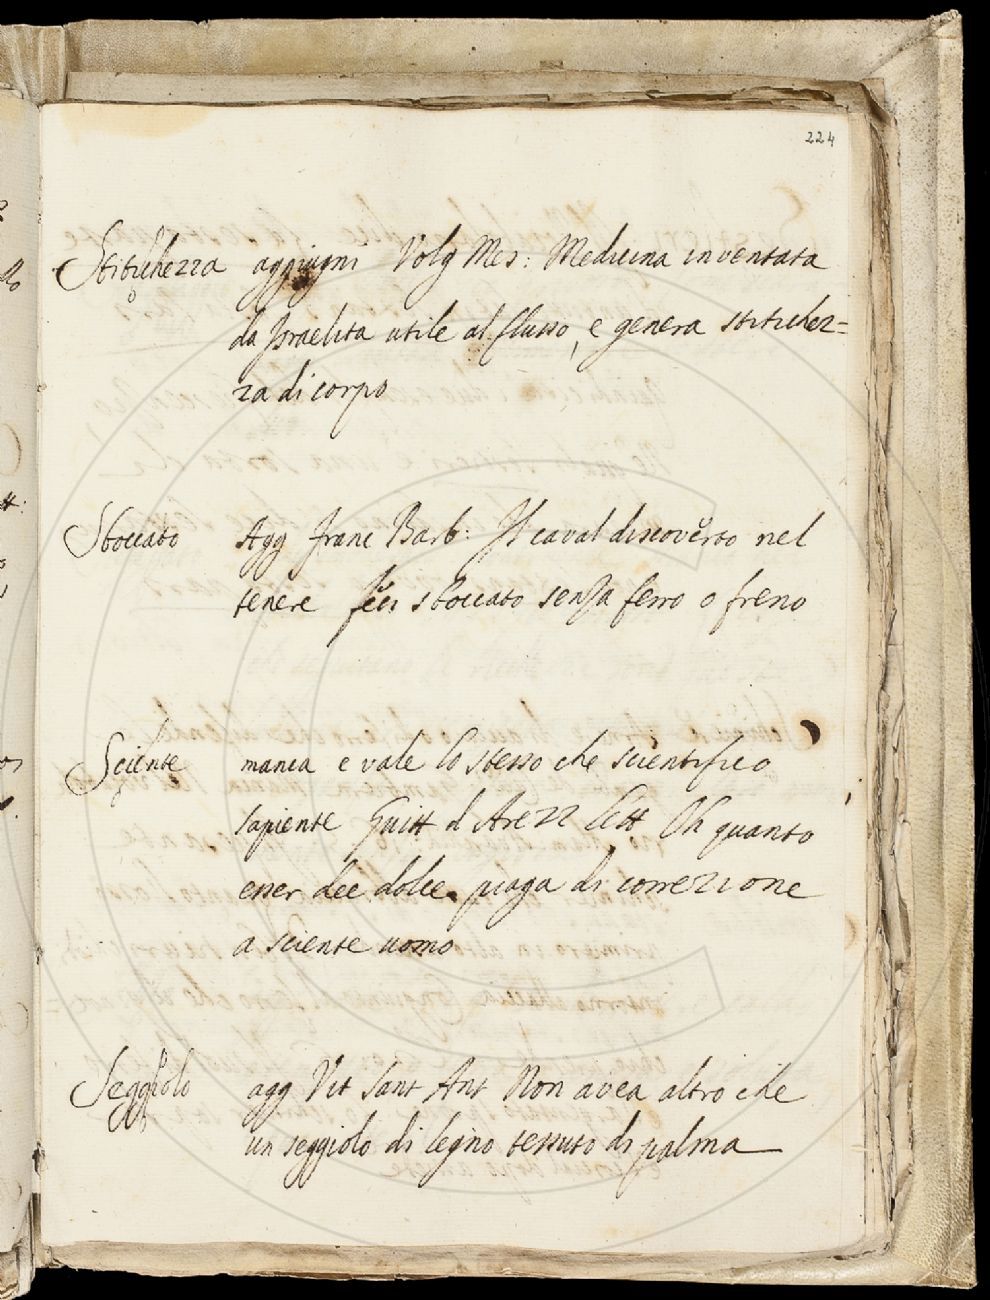 224
Stitichezza aggiugni Volg Mes: Medicina inventata
da Israelita utile al flusso, e genera stitichez=
za di corpo
Sboccato Agg Franc Barb: Il caval discoverto nel
tenere sboccato senza ferro o freno
Sciente manca e vale lo stesso che scientifico
sapiente Guitt d Arezz lett Oh quanto
esser dee dolce piaga di correzione
a sciente uomo
Seggiolo agg Vit Sant Ant Non avea altro che
un seggiolo di legno tessuto di palma